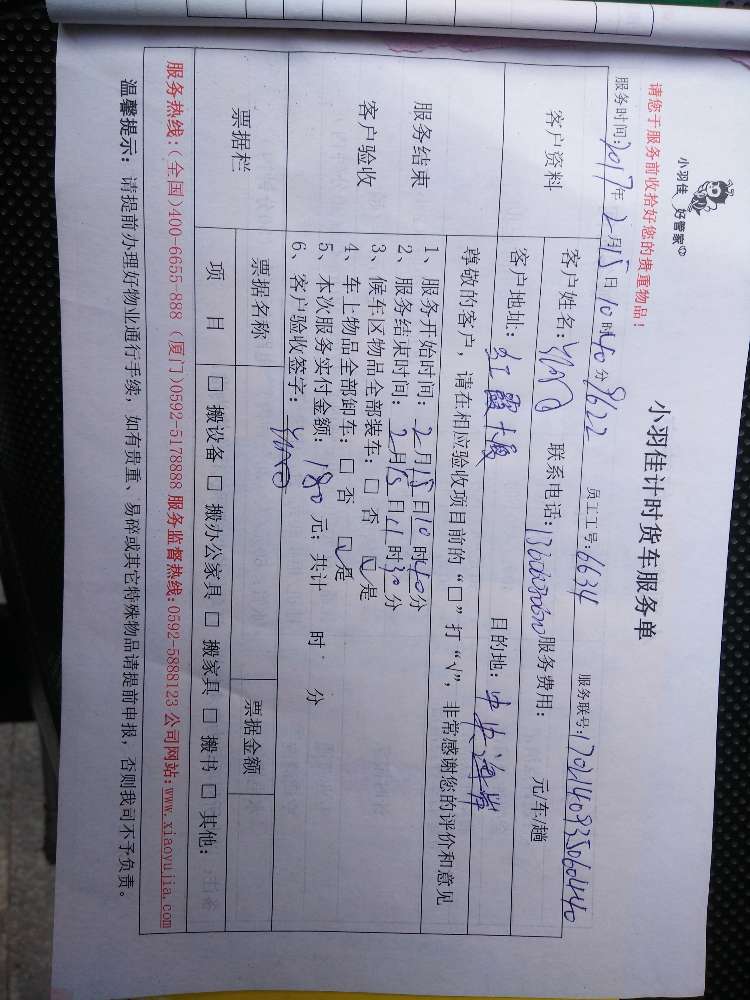 小羽佳 好管家
小羽佳计时货车服务单
请您于服务前收拾好您的贵重物品！
服务时间:2017年2月15日10时40分 员工工号:6634 服务联号:1702140935060440
客户资料
客户姓名: 联系电话: 服务费用: 元/车/趟
客户地址: 红霞小区 目的地: 中央
服务结束
客户验收
尊敬的客户，请在相应验收项目前的“□”打“√”，非常感谢您的评价和意见
1、服务开始时间：2月15日10时40分
2、服务结束时间：2月15日11时30分
3、候车区物品全部装车：□ 否 ☑ 是
4、车上物品全部卸车：□ 否 ☑ 是
5、本次服务实付金额：180元；共计 时 分
6、客户验收签字：
票据栏
票据名称 票据金额
项 目 □ 搬设备 □ 搬办公家具 □ 搬家具 □ 搬书 □ 其他：
服务热线:(全国)400-6655-888 (厦门)0592-5178888 服务监督热线:0592-5888123 公司网站:www.xiaoyujia.com
温馨提示：请提前办理好物业通行手续，如有贵重、易碎或其它特殊物品请提前申报，否则我司不予负责。